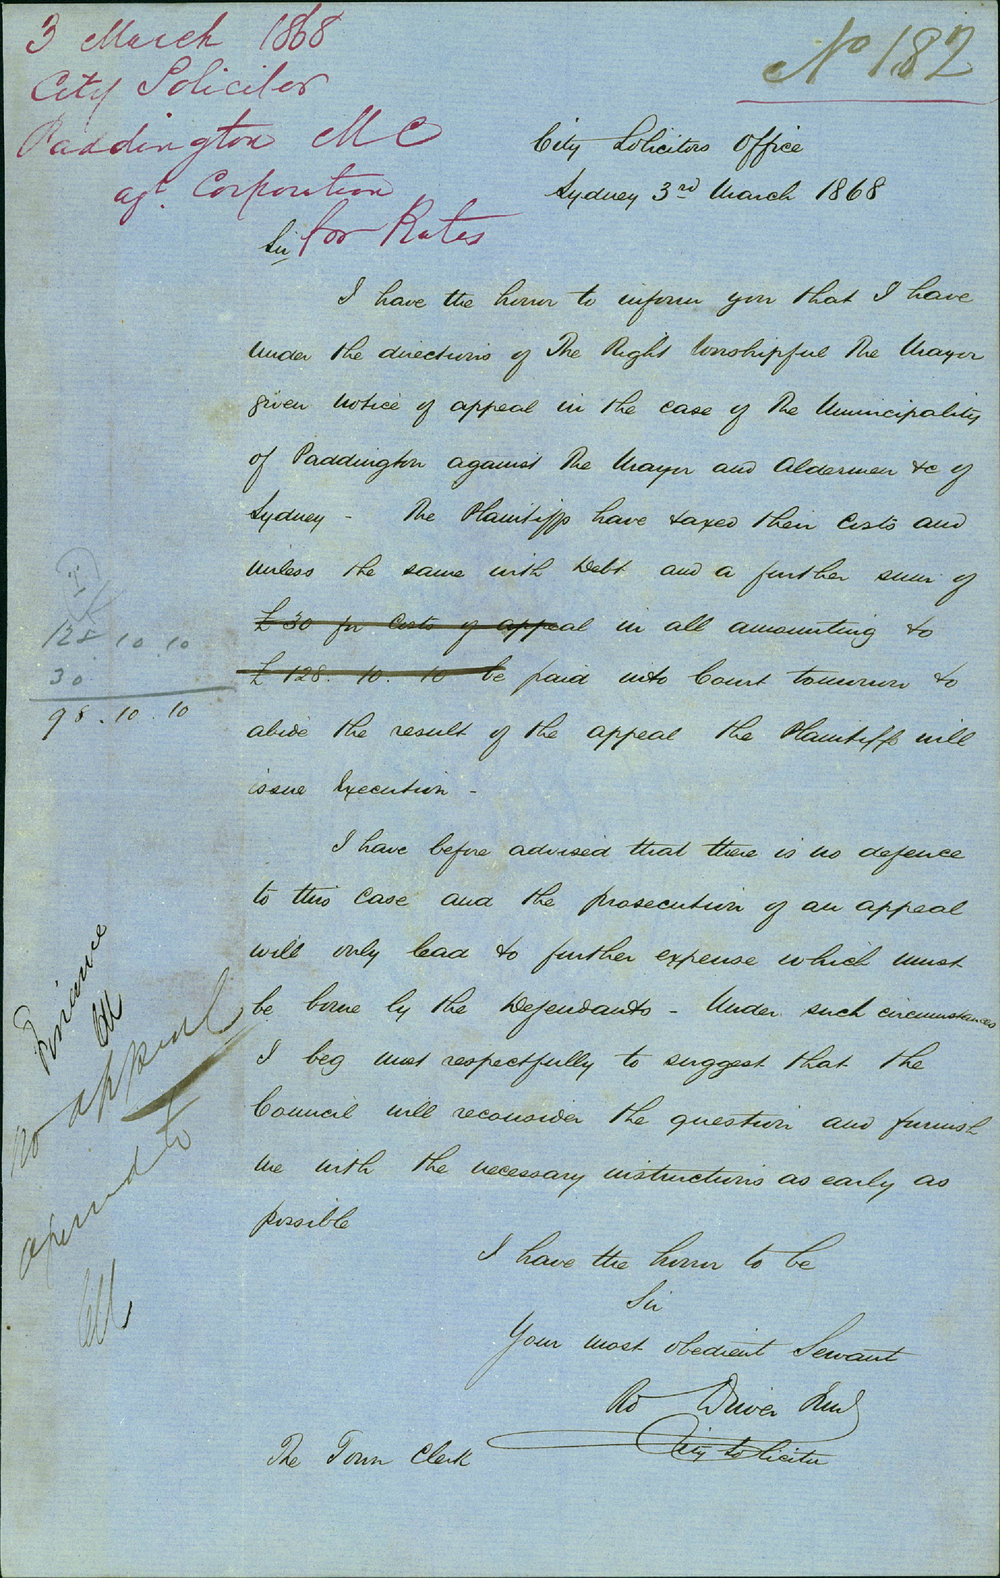 3 March 1868
City Solicitor
Paddington M C
agt. Corporation
for Rates
No 182
City Solicitors Office
Sydney 3rd March 1868
Sir
I have the honor to inform you that I have
under the directions of The Right Worshipful The Mayor
given notice of appeal in the case of The Municipality
of Paddington against The Mayor and Aldermen &c of
Sydney - The Plaintiffs have taxed their Costs and
unless the same with Debt and a further sum of
£30 for Costs of appeal in all amounting to
£128. 10. 10 be paid into Court tomorrow to
abide the result of the appeal the Plaintiffs will
issue Execution -
I have before advised that there is no defence
to this case and the prosecution of an appeal
will only lead to further expense which must
be borne by the Defendants - Under such circumstances
I beg most respectfully to suggest that the
Council will reconsider the question and furnish
me with the necessary instructions as early as
possible
I have the honor to be
Sir
Your most obedient Servant
Rd Driver Junr
City Solicitor
The Town Clerk
128 . 10 . 10
30
98 . 10 . 10
Finance
no appeal